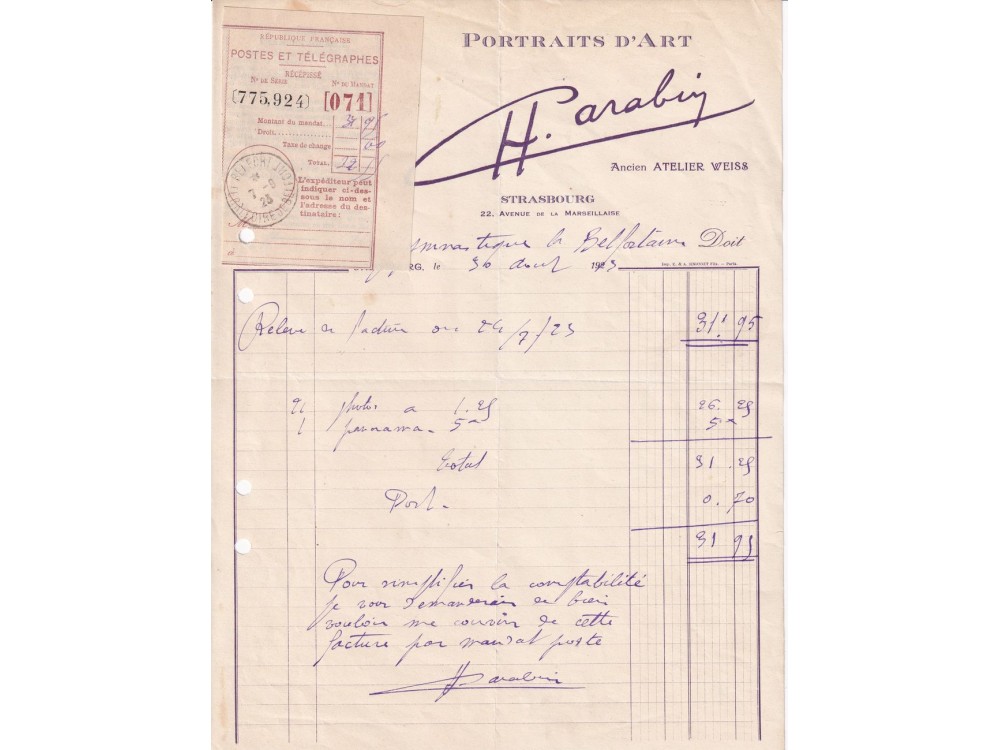 RÉPUBLIQUE FRANÇAISE
POSTES ET TÉLÉGRAPHES
RÉCÉPISSÉ
Nº DE SÉRIE Nº DU MANDAT
(775.924) [071]
Montant du mandat... 31.95
Droit
Taxe de change
TOTAL
L'expéditeur peut
indiquer ci-des-
sous le nom et
l'adresse du des-
tinataire :
M
PORTRAITS D'ART
H. Parabin
Ancien ATELIER WEISS
STRASBOURG
22, AVENUE DE LA MARSEILLAISE
la Belfortaine Doit
RG, le 30 1923
Relevé de facture du 24/7/23 31f 95
21 photos a 1.25 26.25
1 panorama 5 5
total 31.25
Port 0.70
31 95
Pour simplifier la comptabilité
je vous demanderai de bien
vouloir me couvrir de cette
facture par mandat poste
H. Parabin